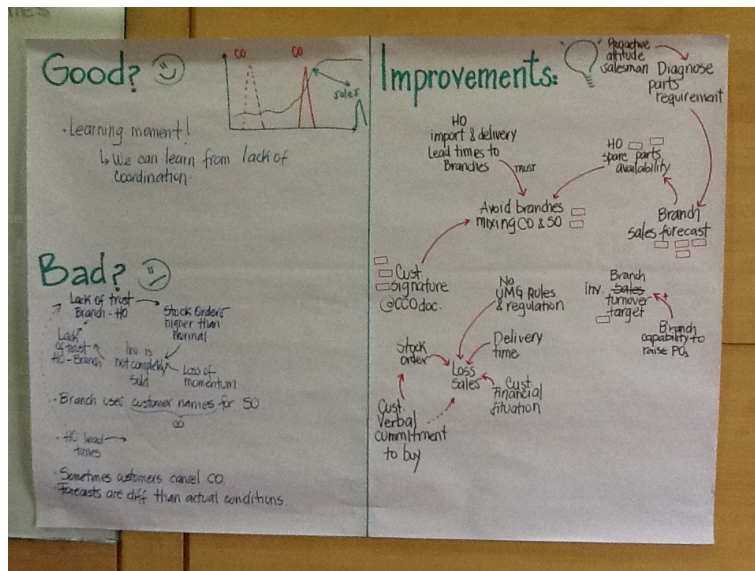 Good?
CO
CO
sales
• Learning moment!
↳ We can learn from lack of
coordination.
Bad?
Lack of trust
Branch - HO
Stock Orders
higher than
Normal
Loss of
momentum
Inv is
not completely
sold
Lack
of trust
HO-Branch
• Branch uses customer names for SO
CO
• HO lead
times
• Sometimes customers cancel CO.
Forecasts are diff than actual conditions.
Improvements:
Proactive
attitude
salesman
Diagnose
parts
requirement
HO
import & delivery
Lead times to
Branches
TRUST
HO
spare parts
availability
Avoid branches
mixing CO & SO
Branch
sales forecast
Cust
signature
@CCO doc.
No
UMG Rules
& regulation
Branch
inv. Sales
turnover
target
+
Branch
capability to
raise POs
Stock
order
Delivery
time
Loss
Sales
Cust
Financial
situation
Cust
Verbal
commitment
to buy